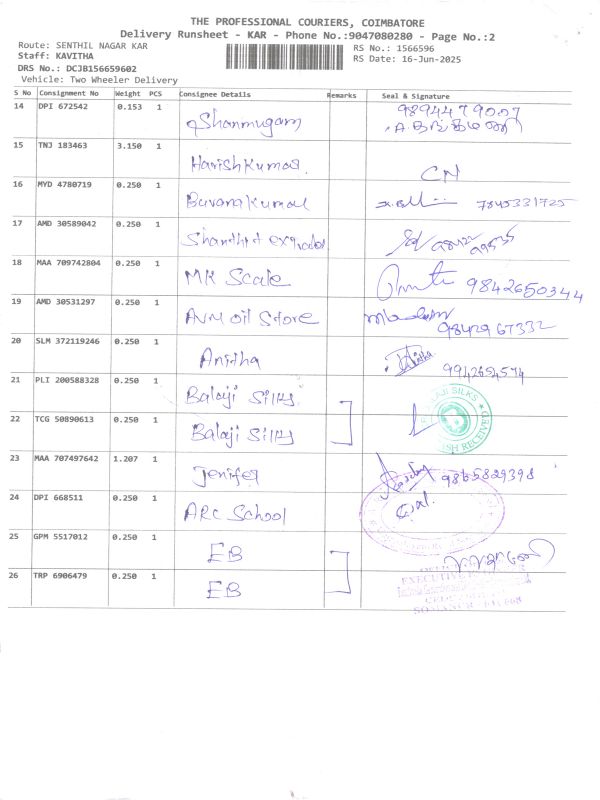 THE PROFESSIONAL COURIERS, COIMBATORE
Delivery Runsheet - KAR - Phone No.:9047080280 - Page No.:2
Route: SENTHIL NAGAR KAR
Staff: KAVITHA
DRS No.: DCJB156659602
Vehicle: Two Wheeler Delivery
RS No.: 1566596
RS Date: 16-Jun-2025
S No Consignment No Weight PCS Consignee Details Remarks Seal & Signature
14 DPI 672542 0.153 1 Shanmugam 9894479007
15 TNJ 183463 3.150 1 Harishkumar CN
16 MYD 4780719 0.250 1 Buvanakumal 7845331725
17 AMD 30589042 0.250 1
18 MAA 709742804 0.250 1 MK Scale 9842650344
19 AMD 30531297 0.250 1 AVM Oil Store 9842967332
20 SLM 372119246 0.250 1 Anitha
21 PLI 200588328 0.250 1 Balaji Silks
22 TCG 50890613 0.250 1 Balaji Silks
23 MAA 707497642 1.207 1 Jenifer 9865829398
24 DPI 668511 0.250 1 ARC School
25 GPM 5517012 0.250 1 EB
26 TRP 6906479 0.250 1 EB